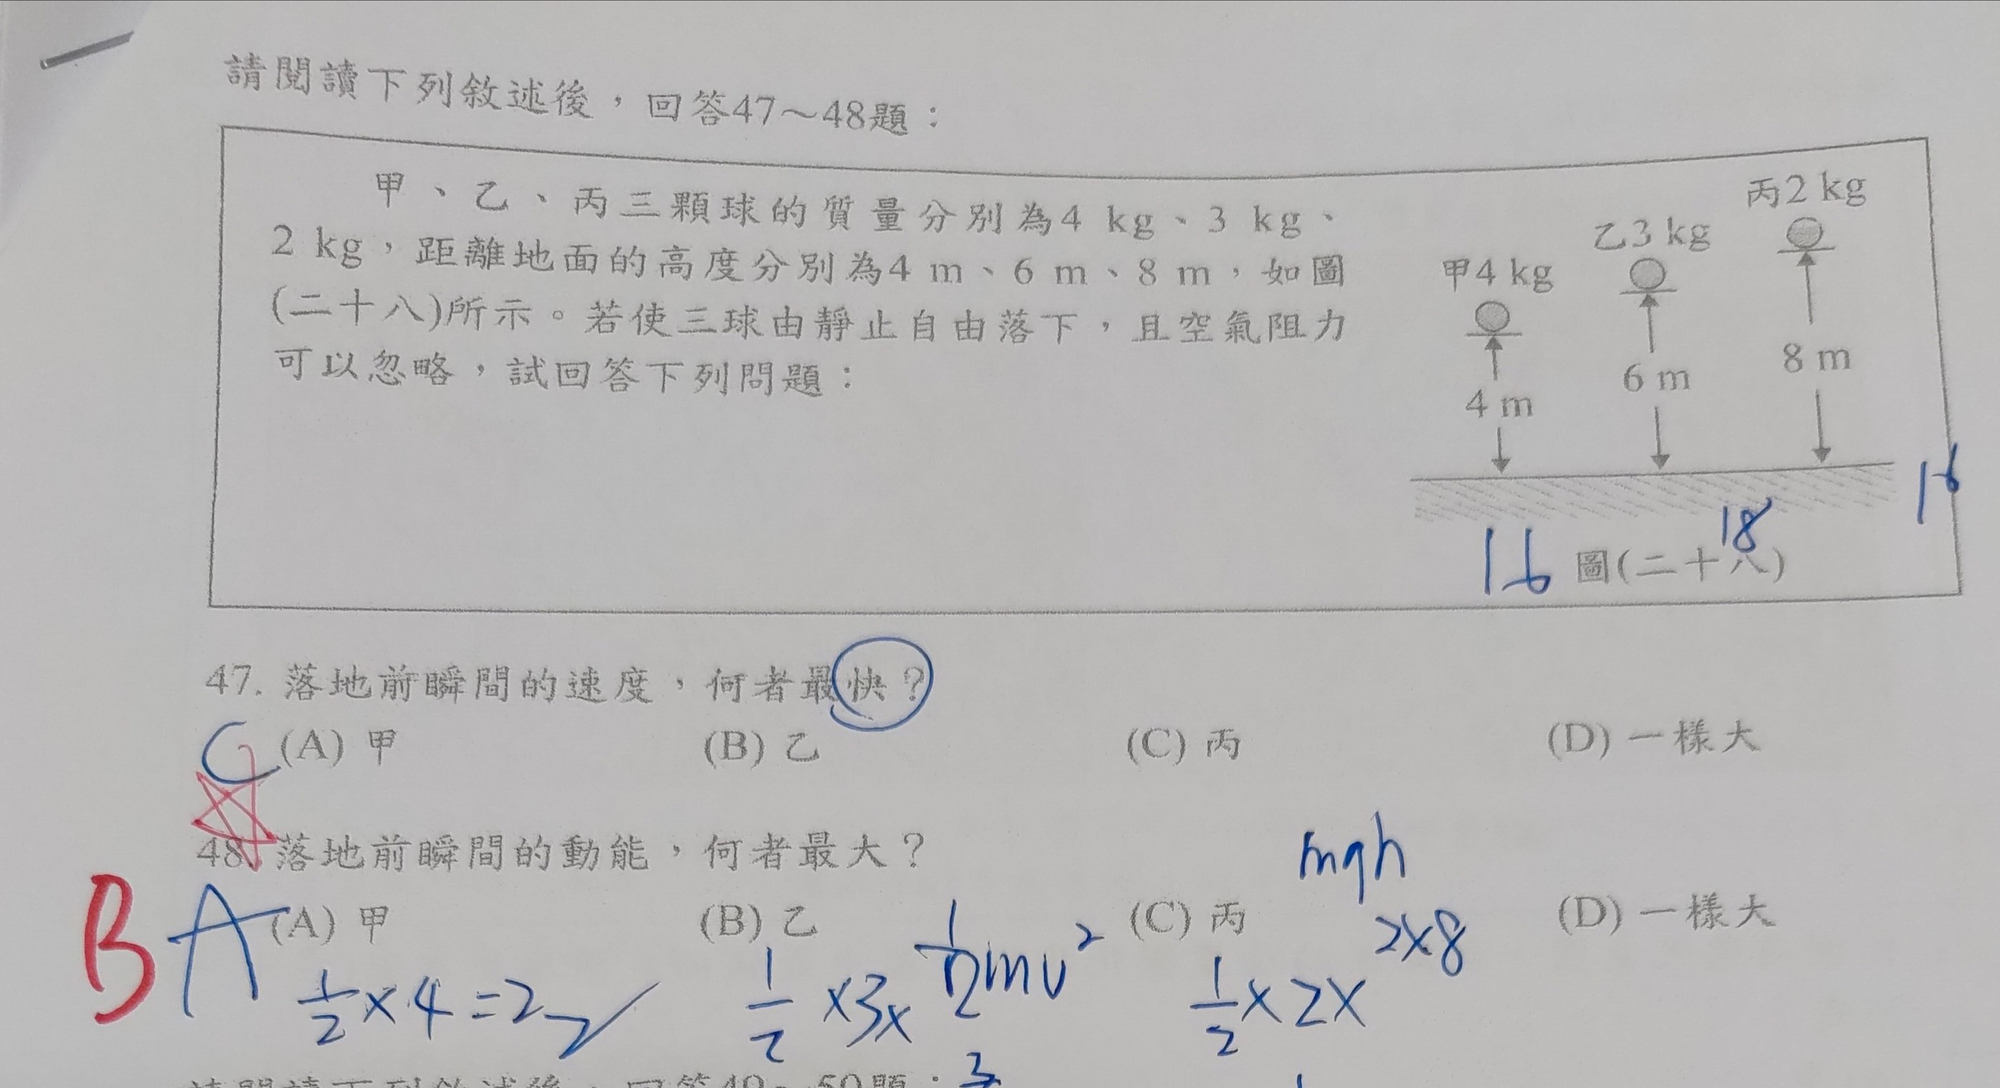 請閱讀下列敘述後，回答47～48題：
甲、乙、丙三顆球的質量分別為4 kg、3 kg、
2 kg，距離地面的高度分別為4 m、6 m、8 m，如圖
(二十八)所示。若使三球由靜止自由落下，且空氣阻力
可以忽略，試回答下列問題：
丙2 kg
乙3 kg
甲4 kg
8 m
6 m
4 m
16
18
16
圖(二十八)
47. 落地前瞬間的速度，何者最快？
C (A) 甲 (B) 乙 (C) 丙 (D) 一樣大
48. 落地前瞬間的動能，何者最大？
mgh
B A (A) 甲 (B) 乙 (C) 丙 (D) 一樣大
2×8
½×4=2 ½×3× ½mv² ½×2×
請閱讀下列敘述後，回答49～50題：